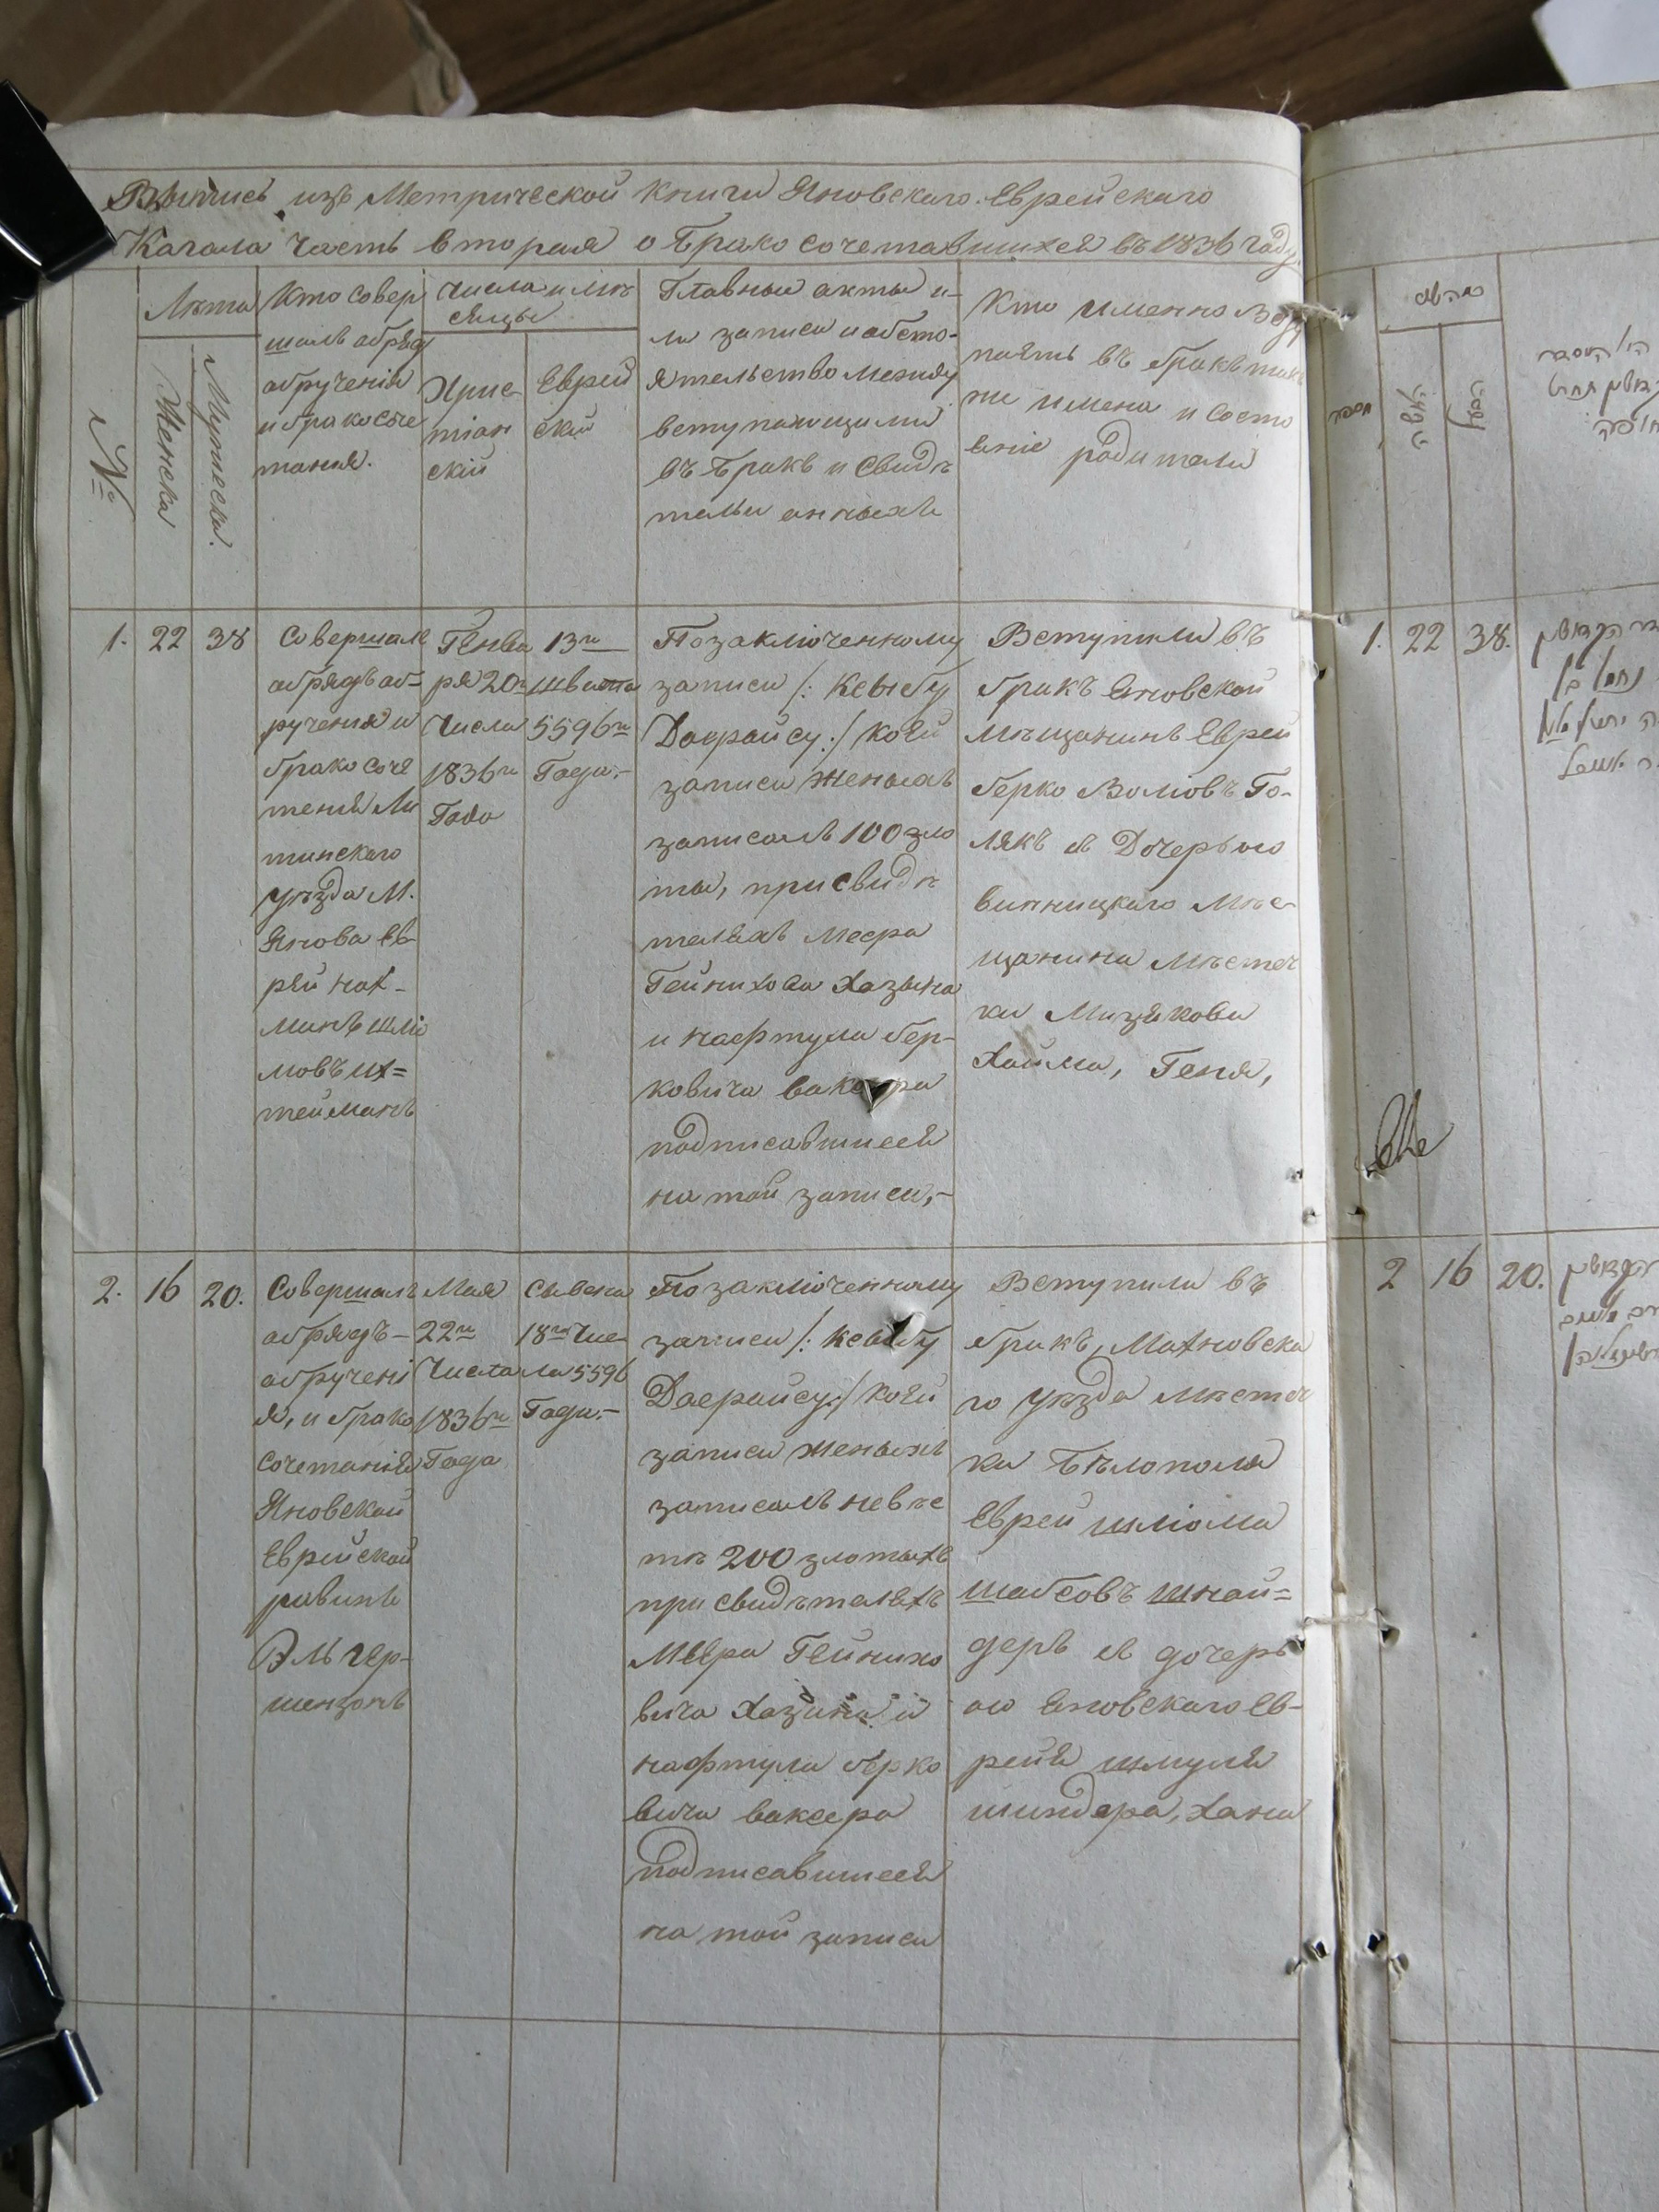 Выпись изъ Метрической Книги Яновскаго Еврейскаго
Кагала Часть вторая о Бракосочетавшихся въ 1836 году
№
Лѣта
Женска
Мужеска.
Кто совер
шалъ обряд
обрученія
и бракосоче
танія.
Числа и мѣ
сяцы
Хрис
тіан
скій
Еврей
скій
Главныи акты и-
ли записи и обсто-
ятельство между
вступающими
въ Бракъ и Свидѣ
тели онныхъ
Кто именно всту
паетъ въ бракъ так
же имена и состо
яніе родители
1.
22
38
Совершалъ
обрядъ об-
рученія и
бракосоче
тенія Ли
тинскаго
уѣзда М.
Янова Ев-
рей Нох-
минъ Шлио
мовъ Их=
тейманъ
Генва
ря 20го
Числа
1836го
Года
13го
Швата
5596го
Года.-
По заключенному
записи /: Кевубу
Даерайсу :/ коей
записи женыхъ
записалъ 100 зло
ты, при свидѣ
теляхъ Меера
Гейнихова Хазына
и Нафтули Бер-
ковича Ваксера
подписавшися
на той записи,-
Вступили въ
бракъ Яновской
Мѣщанинъ Еврей
Берко Волковъ По-
лякъ съ Дочерьою
винницкаго Мѣс-
щанина Мѣстеч
ки Мизякова
Хайма, Геня,
2.
16
20.
Совершалъ
обрядъ-
обручені
я, и брако
сочетанія
Яновской
Еврейской
равинъ
Эль Гер-
шензонъ
Мая
22го
Числа
1836го
Года
Сывена
18го Чис
ла 5596
Года.-
По заключенному
записи /: кевубу
Даерайсу :/ коей
записи женыхъ
записалъ невѣс
тѣ 200 злотыхъ
при свидѣтеляхъ
Меера Гейнихо
вича Хазина и
Нафтули Берко
вича Ваксера
подписавшися
на той записи
Вступили въ
бракъ, Махновска
го уѣзда Мѣстеч
ки Бѣлополя
Еврей Шліома
Шабсовъ Шнай=
деръ съ дочерь
ою Яновскаго Ев-
рейя Шмуля
Шиндера, Хана
1.
22
38.
2
16
20.